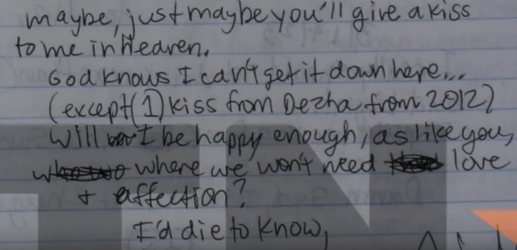 maybe, just maybe you'll give a kiss
to me in Heaven.
God knows I can't get it down here...
(except (1) kiss from Dezha from 2012)
Will I be happy enough, as like you,
where we won't need love
+ affection?
I'd die to know,